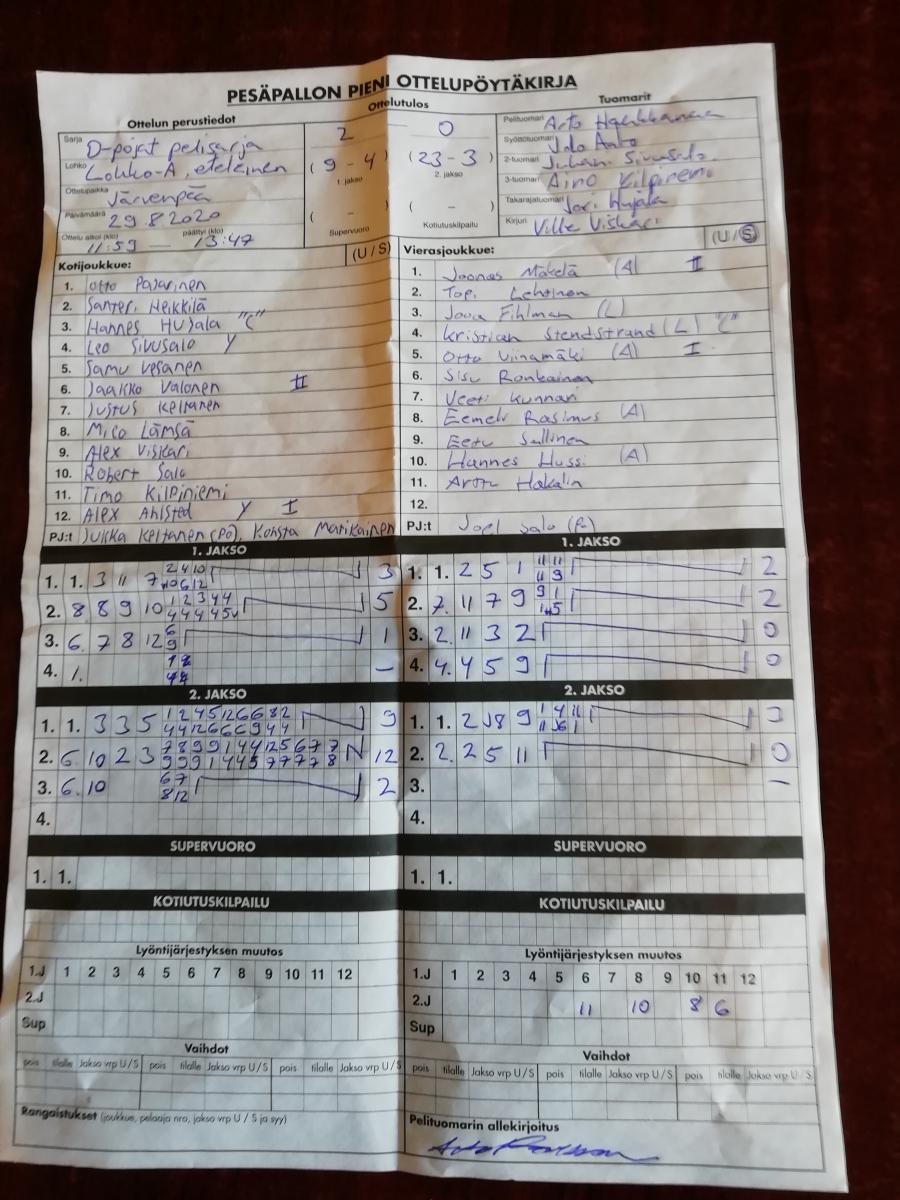 PESÄPALLON PIENI OTTELUPÖYTÄKIRJA
Ottelun perustiedot
Sarja D-pojat pelisarja
Lohko Lohko-A, eteläinen
Ottelupaikka Järvenpää
Päivämäärä 29.8.2020
Ottelu alkoi (klo) 11:59 — päättyi (klo) 13:47
Ottelutulos
2 0
(9 - 4) (23 - 3)
1. jakso 2. jakso
( - ) ( - )
Supervuoro Kotiutuskilpailu
Tuomarit
Pelituomari Arto
Syöttötuomari Aalto
2-tuomari Juhani Sivusalo
3-tuomari Aino Kilpiniemi
Takarajatuomari Jari Hujala
Kirjuri Ville Viskari
Kotijoukkue: (U / S)
1. Otto Pajarinen
2. Santeri Heikkilä
3. Hannes Hujala "C"
4. Leo Sivusalo Y
5. Samu Vesanen
6. Jaakko Valonen II
7. Justus Keltanen
8. Mico Lämsä
9. Alex Viskari
10. Robert Salo
11. Timo Kilpiniemi
12. Alex Ahlsted Y I
PJ:t Jukka Keltanen (PÖ), Konsta Matikainen
Vierasjoukkue: (U / S)
1. Joonas Mäkelä (A) II
2. Topi Lehtinen
3. Joona Fihlman (L)
4. Kristian Stendstrand (L) "C"
5. Otto Viinamäki (A) I
6. Sisu Ronkainen
7. Veeti Kunnari
8. Eemeli Rasimus (A)
9. Eetu Sallinen
10. Hannes Hussi (A)
11. Arttu Hakalin
12.
PJ:t Joel Salo (PÖ)
1. JAKSO
1. 1. 3 11 7 2 4 10 10 6 12 3
2. 8 8 9 10 1 2 3 4 4 4 4 4 4 5 5
3. 6. 7 8 12 6 9 1
4. 1. –
1. JAKSO
1. 1. 2 5 1 11 11 11 9 2
2. 7. 11 7 9 9 1 2
3. 2. 11 3 2 0
4. 4. 4 5 9 0
2. JAKSO
1. 1. 3 3 5 1 2 4 5 12 6 6 8 2 4 4 12 6 6 6 9 4 4 9
2. 6. 10 2 3 7 8 9 9 1 4 4 12 5 6 7 7 9 9 9 1 4 4 5 7 7 7 7 8 12
3. 6. 10 6 7 8 12 2
4.
2. JAKSO
1. 1. 2 8 9 3
2. 2. 2 5 11 0
3. –
4.
SUPERVUORO
1. 1.
SUPERVUORO
1. 1.
KOTIUTUSKILPAILU
KOTIUTUSKILPAILU
Lyöntijärjestyksen muutos
1.J 1 2 3 4 5 6 7 8 9 10 11 12
2.J
Sup
Lyöntijärjestyksen muutos
1.J 1 2 3 4 5 6 7 8 9 10 11 12
2.J 11 10 8 6
Sup
Vaihdot
pois tilalle Jakso vrp U / S pois tilalle Jakso vrp U / S pois tilalle Jakso vrp U / S
Vaihdot
pois tilalle Jakso vrp U / S pois tilalle Jakso vrp U / S pois tilalle Jakso vrp U / S
Rangaistukset (joukkue, pelaaja nro, jakso vrp U / S ja syy)
Pelituomarin allekirjoitus